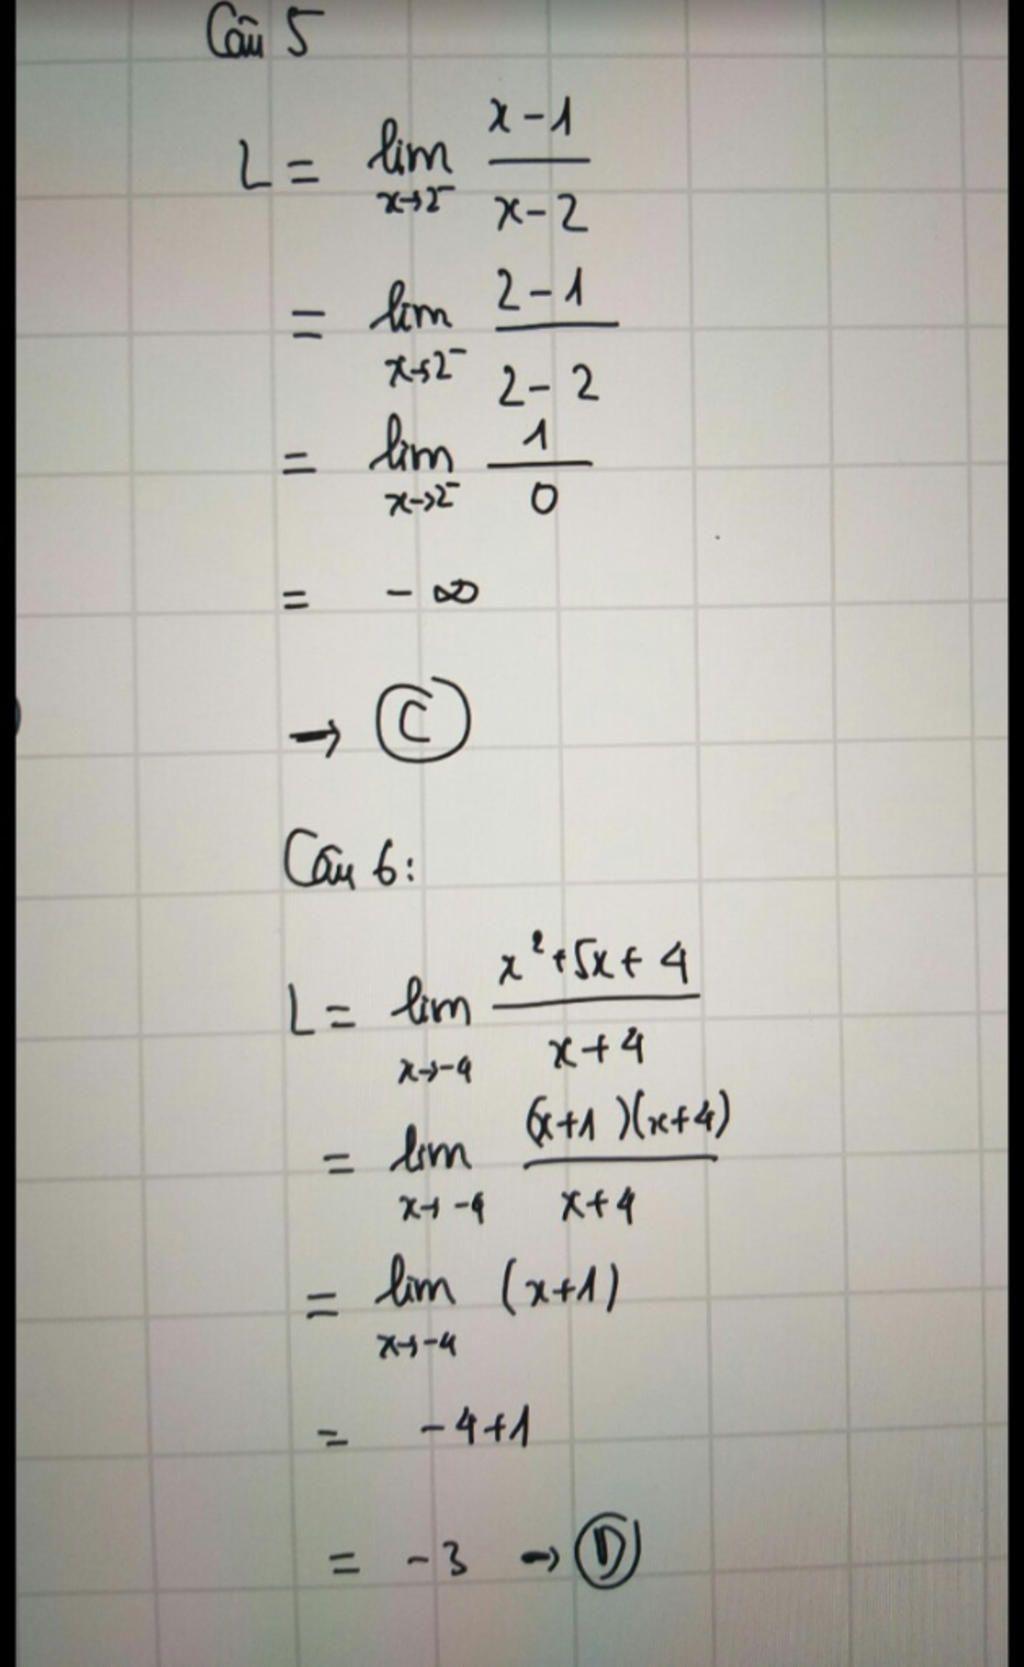 Câu 5
L = lim x→2⁻ (x-1)/(x-2)
= lim x→2⁻ (2-1)/(2-2)
= lim x→2⁻ 1/0
= -∞
→ C
Câu 6:
L = lim x→-4 (x²+5x+4)/(x+4)
= lim x→-4 (x+1)(x+4)/(x+4)
= lim x→-4 (x+1)
= -4+1
= -3 → D